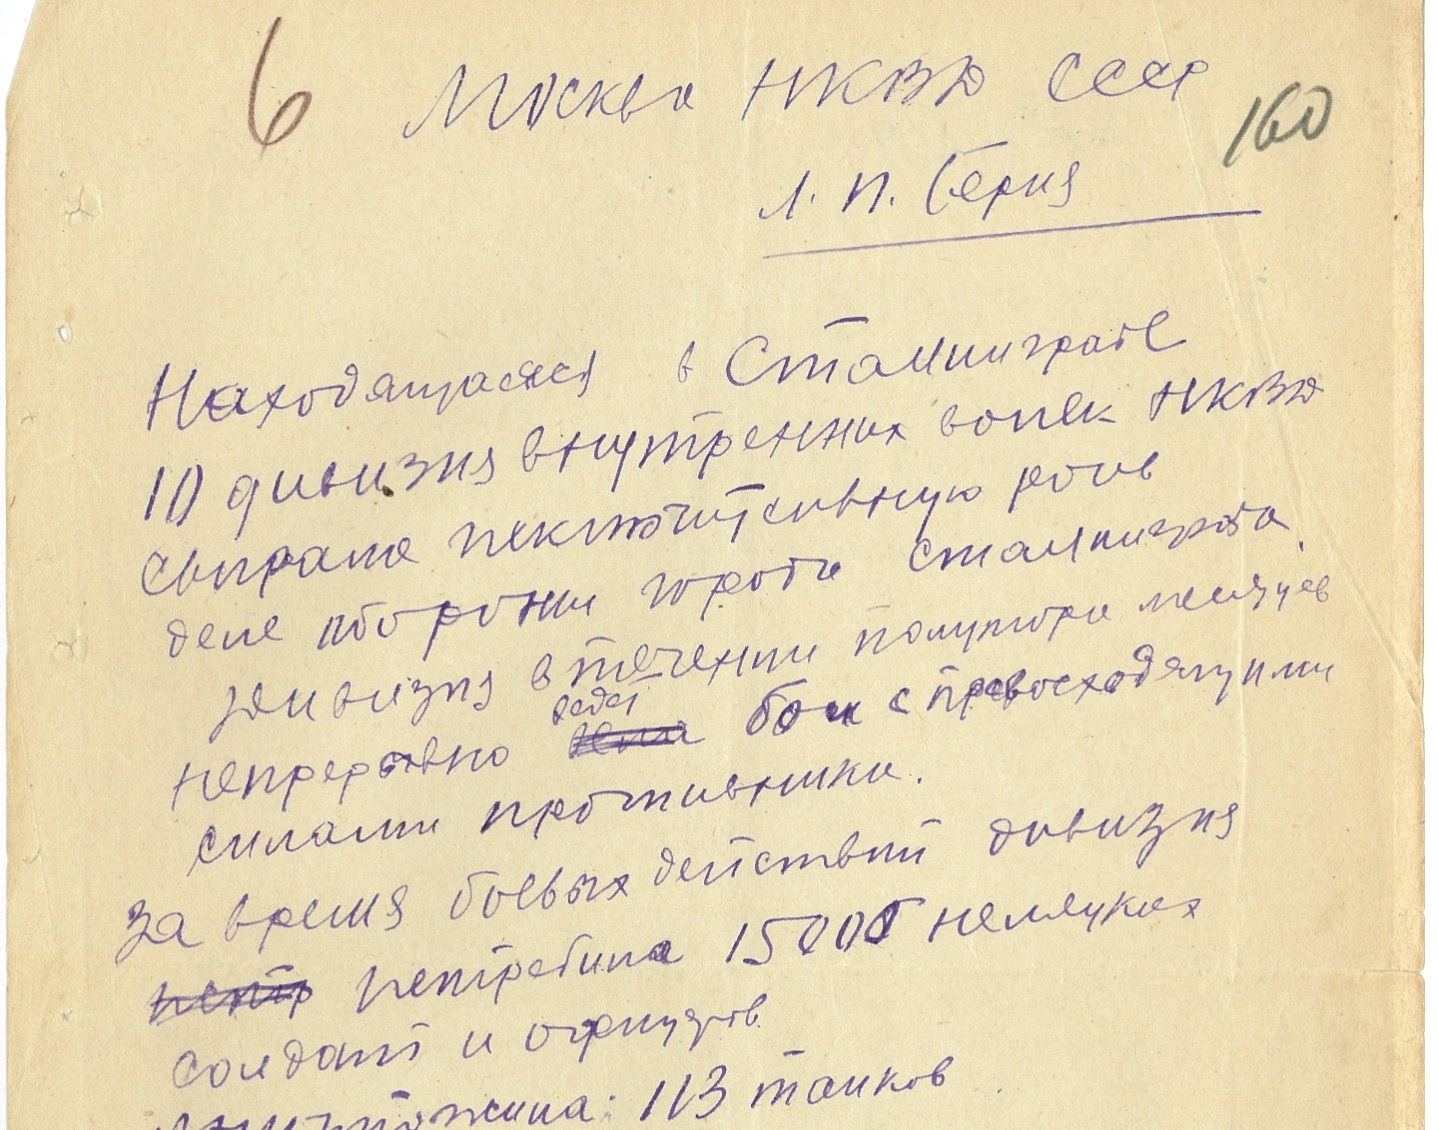 6
Москва НКВД СССР
160
Л. П. Берия
Находящаяся в Сталинграде
10 дивизия внутренних войск НКВД
сыграла исключительную роль
деле обороны города Сталинграда.
Дивизия в течении полутора месяцев
ведет
непрерывно вела бои с превосходящими
силами противника.
За время боевых действий дивизия
истр истребила 15000 немецких
солдат и офицеров
Уничтожила: 113 танков